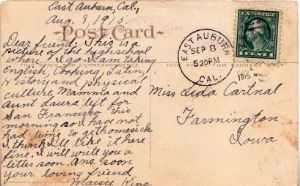 East Auburn, Cal,
Aug. 8, 1910.
Post Card
Dear friend: This is a
picture of the high school
where I go. I am taking
English, Cooking, Latin,
History and Physical
culture. Mamma and
Aunt Laura left for
San Francisco this
morning so I have not
had time to get homesick
I think I'll like it here
fine. I will write you a
letter soon. Ans. soon
Your loving friend,
Maisie King
EAST AUBURN
SEP 8
6 30 PM
CAL.
Miss Leda Cartnal
Farmington
Iowa